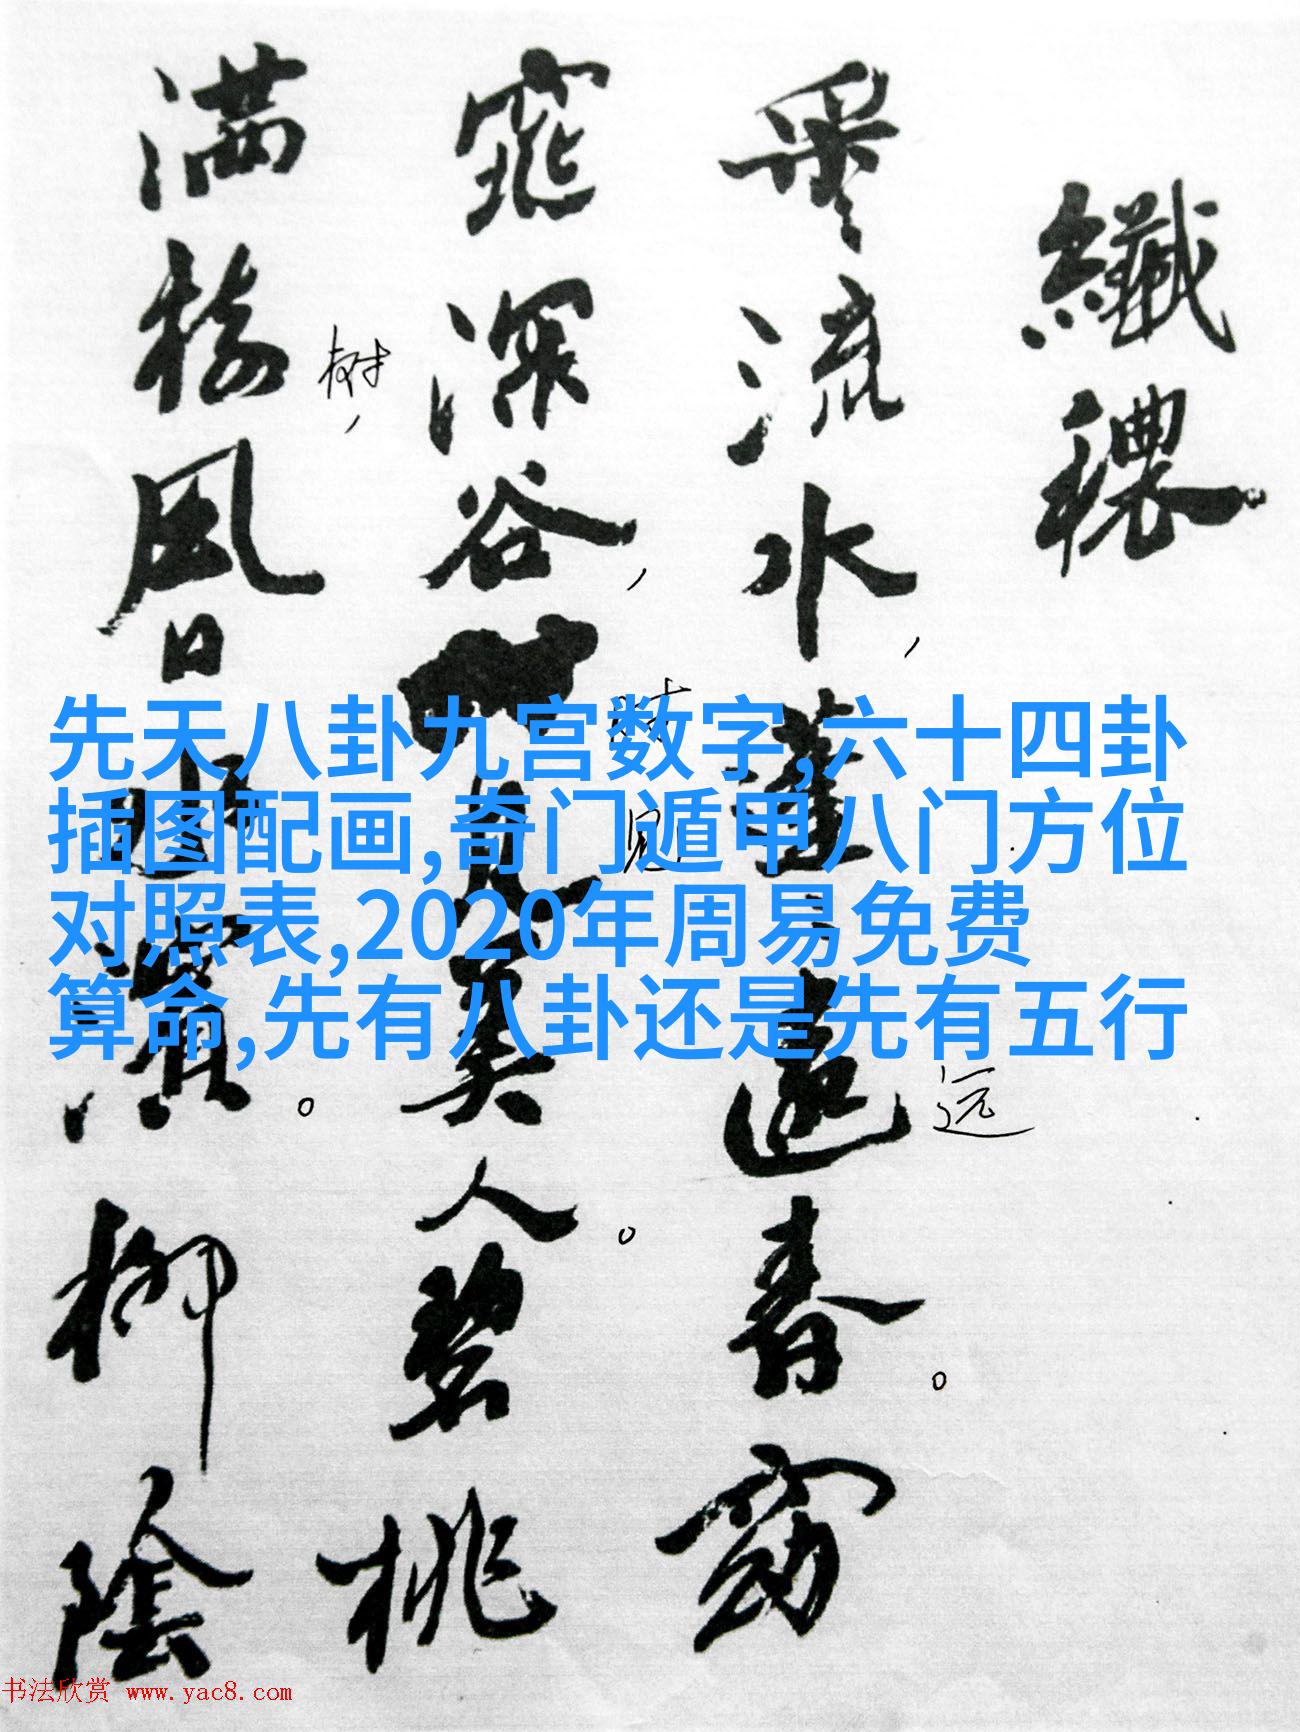 纖穠
采流水，蓬蓬遠春。窈
远
窕深谷，時見美人。碧桃
时
见
满樹風日水濱。柳陰
树，
先天八卦九宫数字,六十四卦
插图配画,奇门遁甲八门方位
对照表,2020年周易免费
算命,先有八卦还是先有五行
书法欣赏 www.yac8.com